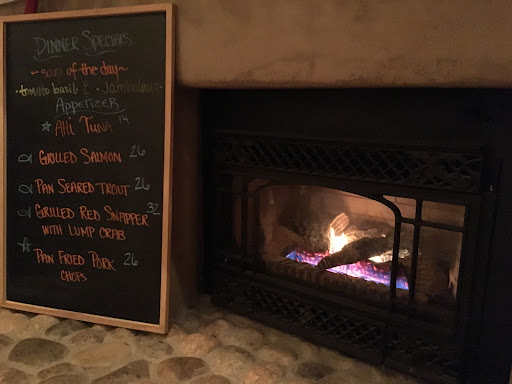 Dinner Specials
~ soup of the day ~
tomato basil & Jambalaya
Appetizer
Ahi Tuna 14
Grilled Salmon 26
Pan Seared Trout 26
Grilled Red Snapper 32
with Lump Crab
Pan Fried Pork 26
Chops